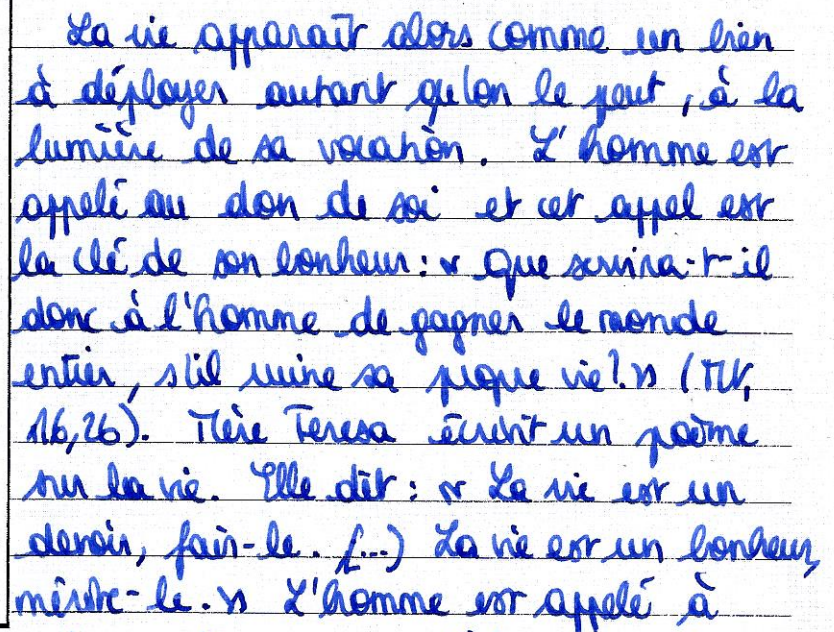 La vie apparaît alors comme un bien
à déployer autant qu'on le peut, à la
lumière de sa vocation. L'homme est
appelé au don de soi et cet appel est
la clé de son bonheur : « Que servira-t-il
donc à l'homme de gagner le monde
entier, s'il ruine sa propre vie ? » (Mt,
16,26). Mère Teresa écrivit un poème
sur la vie. Elle dit : « La vie est un
devoir, fais-le. (...) La vie est un bonheur,
mérite-le. » L'homme est appelé à